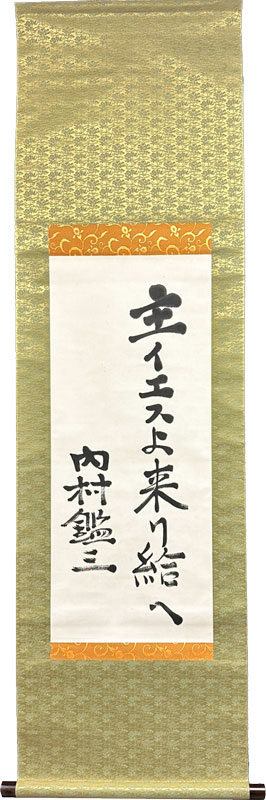 主イエスよ来り給へ
内村鑑三